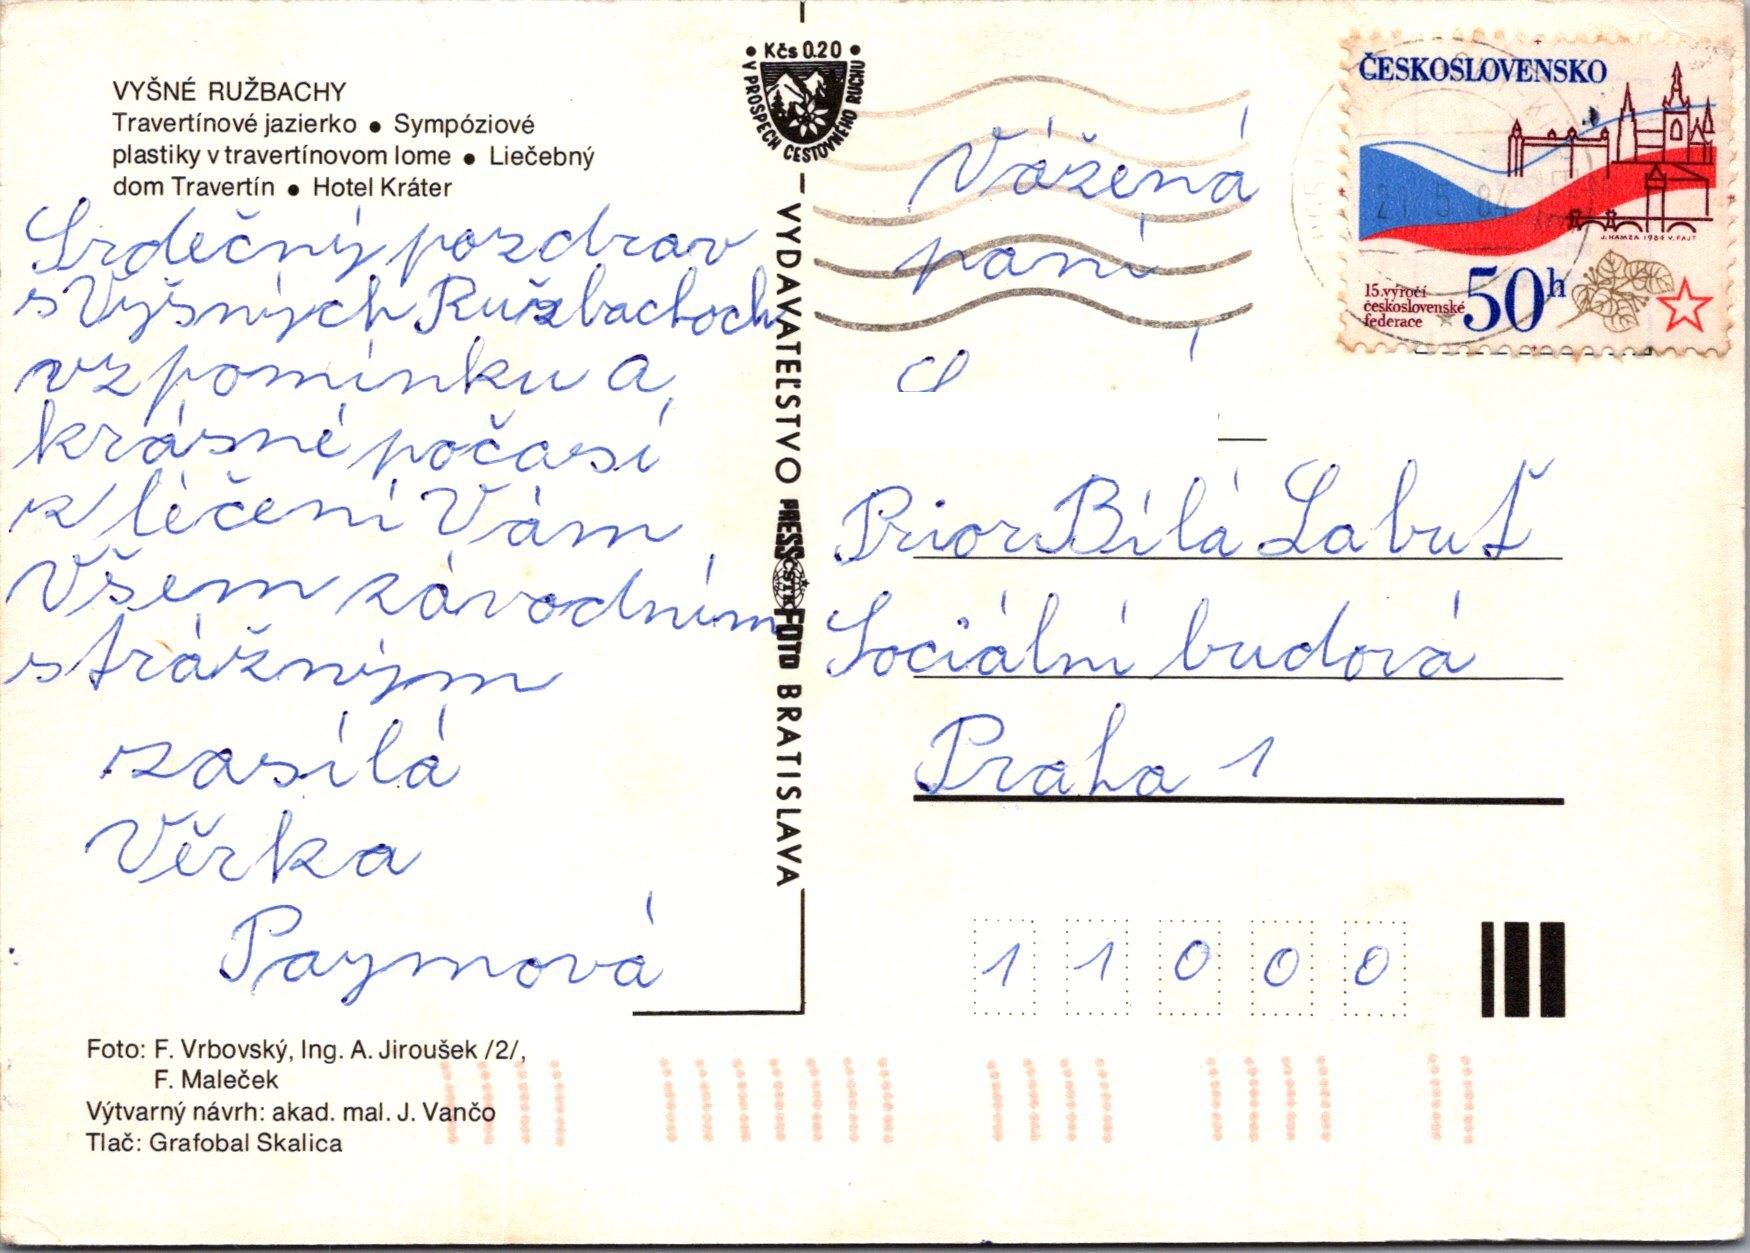 VYŠNÉ RUŽBACHY
Travertínové jazierko ● Sympóziové
plastiky v travertínovom lome ● Liečebný
dom Travertín ● Hotel Kráter
Srdečný pozdrav
s Vyšných Ružbachoch
vzpomínku a
krásné počasí
z léčení Vám
Všem závodním
strážným
zasílá
Věrka
Paymová
Foto: F. Vrbovský, Ing. A. Jiroušek /2/,
F. Maleček
Výtvarný návrh: akad. mal. J. Vančo
Tlač: Grafobal Skalica
• Kčs 0.20 •
V PROSPECH CESTOVNÉHO RUCHU
VYDAVATEĽSTVO PRESSFOTO BRATISLAVA
ČSTK
ČESKOSLOVENSKO
21 5 84
J. HAMZA 1984 V. FAJT
15. výročí
československé
federace
50h
Vážená
paní
Prior Bílá Labuť
Sociální budová
Praha 1
11000